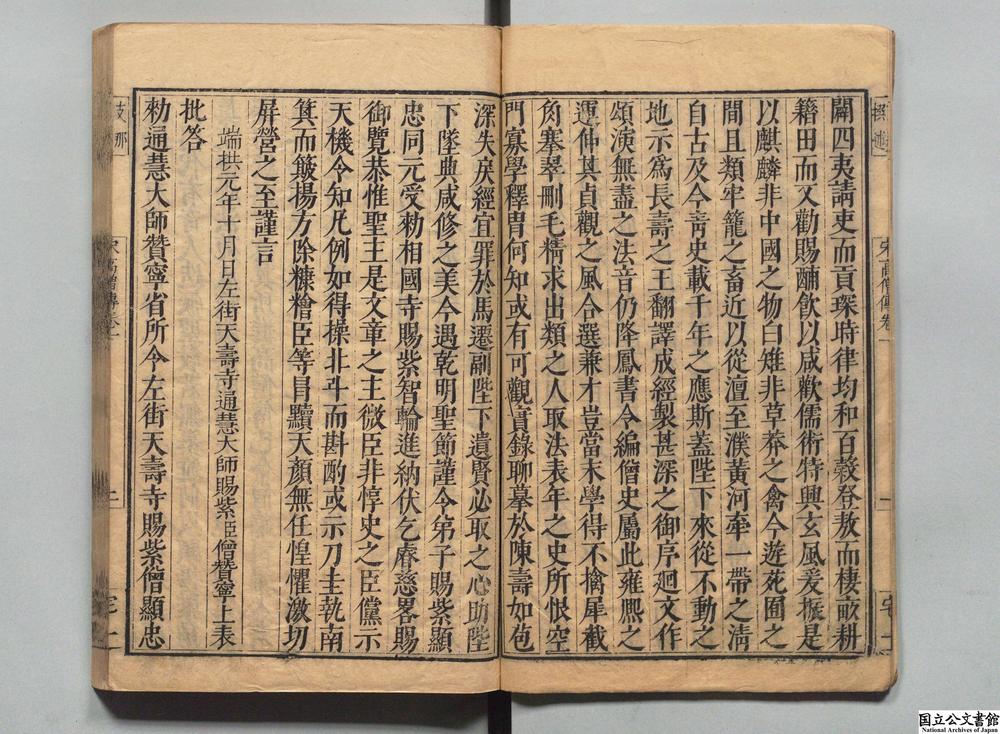 闢四夷請吏而貢琛時律均和百穀登敖而棲畝耕
籍田而又勸賜酺飲以咸歡儒術特興玄風爰振是
以麒麟非中國之物白雉非草莽之禽今遊苑囿之
間且類牢籠之畜近以從澶至濮黃河牽一帶之清
自古及今青史載千年之應斯蓋陛下來從不動之
地示爲長壽之王翻譯成經製甚深之御序迴文作
頌演無盡之法音仍降鳳書令編僧史屬此雍熙之
運仲其貞觀之風合選兼才豈當末學得不擒犀截
角搴翠刪毛精求出類之人取法表年之史所恨空
門寡學釋冑何知或有可觀實錄聊摹於陳壽如苞
深失戾經宜罪於馬遷副陛下遺賢必取之心助陛
下墜典咸修之美今遇乾明聖節謹令弟子賜紫顯
忠同元受勑相國寺賜紫智輪進納伏乞睿慈畧賜
御覽恭惟聖主是文章之主微臣非惇史之臣儻示
天機令知凡例如得操北斗而斟酌或示刀圭執南
箕而簸揚方除糠糩臣等冐黷天顏無任惶懼激切
屏營之至謹言
端拱元年十月日左街天壽寺通慧大師賜紫臣僧贊寧上表
批答
勑通慧大師贊寧省所令左街天壽寺賜紫僧顯忠
宋高僧傳卷一
二
宅一
國立公文書館
National Archives of Japan